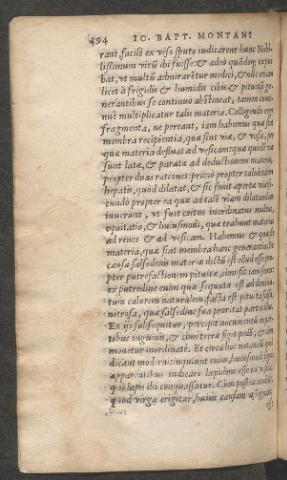 494 IO. BAPT. MONTANI
rant, facile ex viso sputo iudicarent hunc Nobi-
lissimum virū ibi fuisse: & adeo quādoq;
bat, vt multū admirarētur medici, &
licet à frigidis & humidis cibis & pituitā ge-
nerantibus se continuo abstineat, tamen conti-
nue multiplicatur talis materia. Colligendo ergo
fragmenta, ne pereant, iam habemus quæ sint
membra recipientia, quæ sint viæ, & vasa, per
quæ materia defluat ad vesicam: quæ quidē vi
sunt latæ, & paratæ ad deductionem materiæ,
propter duas rationes: primò propter caliditatem
hepatis, quòd dilatat, & sic sunt apertæ viæ: se-
cundò propter ea quæ ad talē viam dilatandam
iuuerunt, vt fuit coitus inordinatus multus,
equitatio, & huiusmodi, quæ trahunt materiā
ad renes & ad vesicam. Habemus & quæ sit
materia, quæ sint membra hanc generantia. Et
causa salsedinis materiæ dictū est illud esse pro-
pter putrefactionem pituitæ,
ex putredine enim quæ sequuta est ad
tum calorem naturalem, facta est pituita salsa,
nitrosa, quæ salsedine sua prouritat
Ex ijs subsequitur, præcipit
tibus inguinis, &
mouetur inordinatè. Et circa hoc notandū
dicant moderni: inquiunt enim, huiusmodi
apparentibus indicari lapidem esse in
qui lapis ibi conquassatur. Cùm postea
quòd virga erigitur, huius causam assignat,